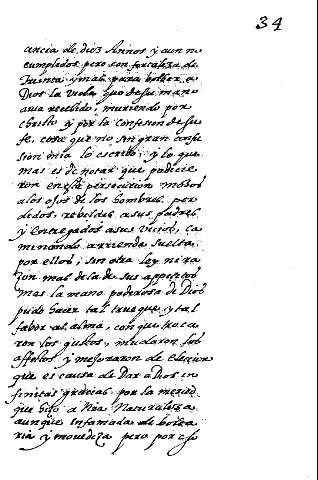 34
ancia de Diez Annos y aun no
cumplidos pero con fortaleza de
treinta y mas para bolber a
Dios la Vida que de su mano
avia recebido, muriendo por
christo y por la confesion de su
fe, cosa que no sin gran confu
sion mia lo escribo, y lo que
mas es de notar que padecie
ron en esta persecucion moços
a los ojos de los hombres per
didos, rebeldes a sus padres
y entregados a sus vicios, ca
minando a rrienda suelta
por ellos, sin otra ley ni ra
zon mas de la de sus appetitos
mas la mano poderosa de Dios
pudo hacer tal trueque y tal
fabor al alma, con que troca
ron los gustos, mudaron los
affectos y mejoraron de eleccion
que es causa de Dar a Dios in
finitas gracias por la merced
que hizo a Nra Naturaleza
aunque infamada de bolta
ria y movediza pero por eso